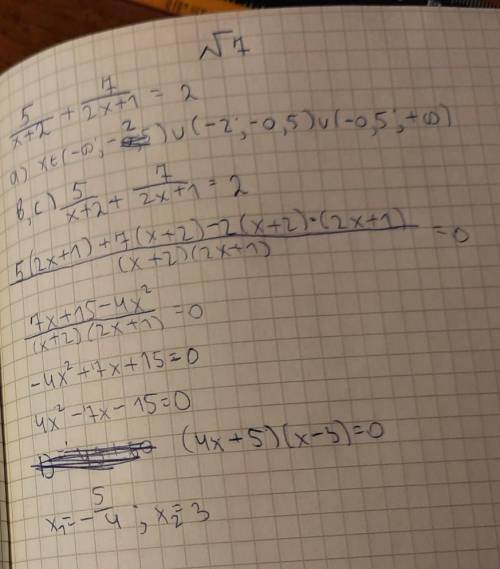 √7
5/(x+2) + 7/(2x+1) = 2
a) x∈(-∞; -2) ∪ (-2; -0,5) ∪ (-0,5; +∞)
b, c) 5/(x+2) + 7/(2x+1) = 2
(5(2x+1)+7(x+2)-2(x+2)·(2x+1))/((x+2)(2x+1)) = 0
(7x+15-4x²)/((x+2)(2x+1)) = 0
-4x²+7x+15=0
4x²-7x-15=0
(4x+5)(x-3)=0
x₁=-5/4; x₂=3